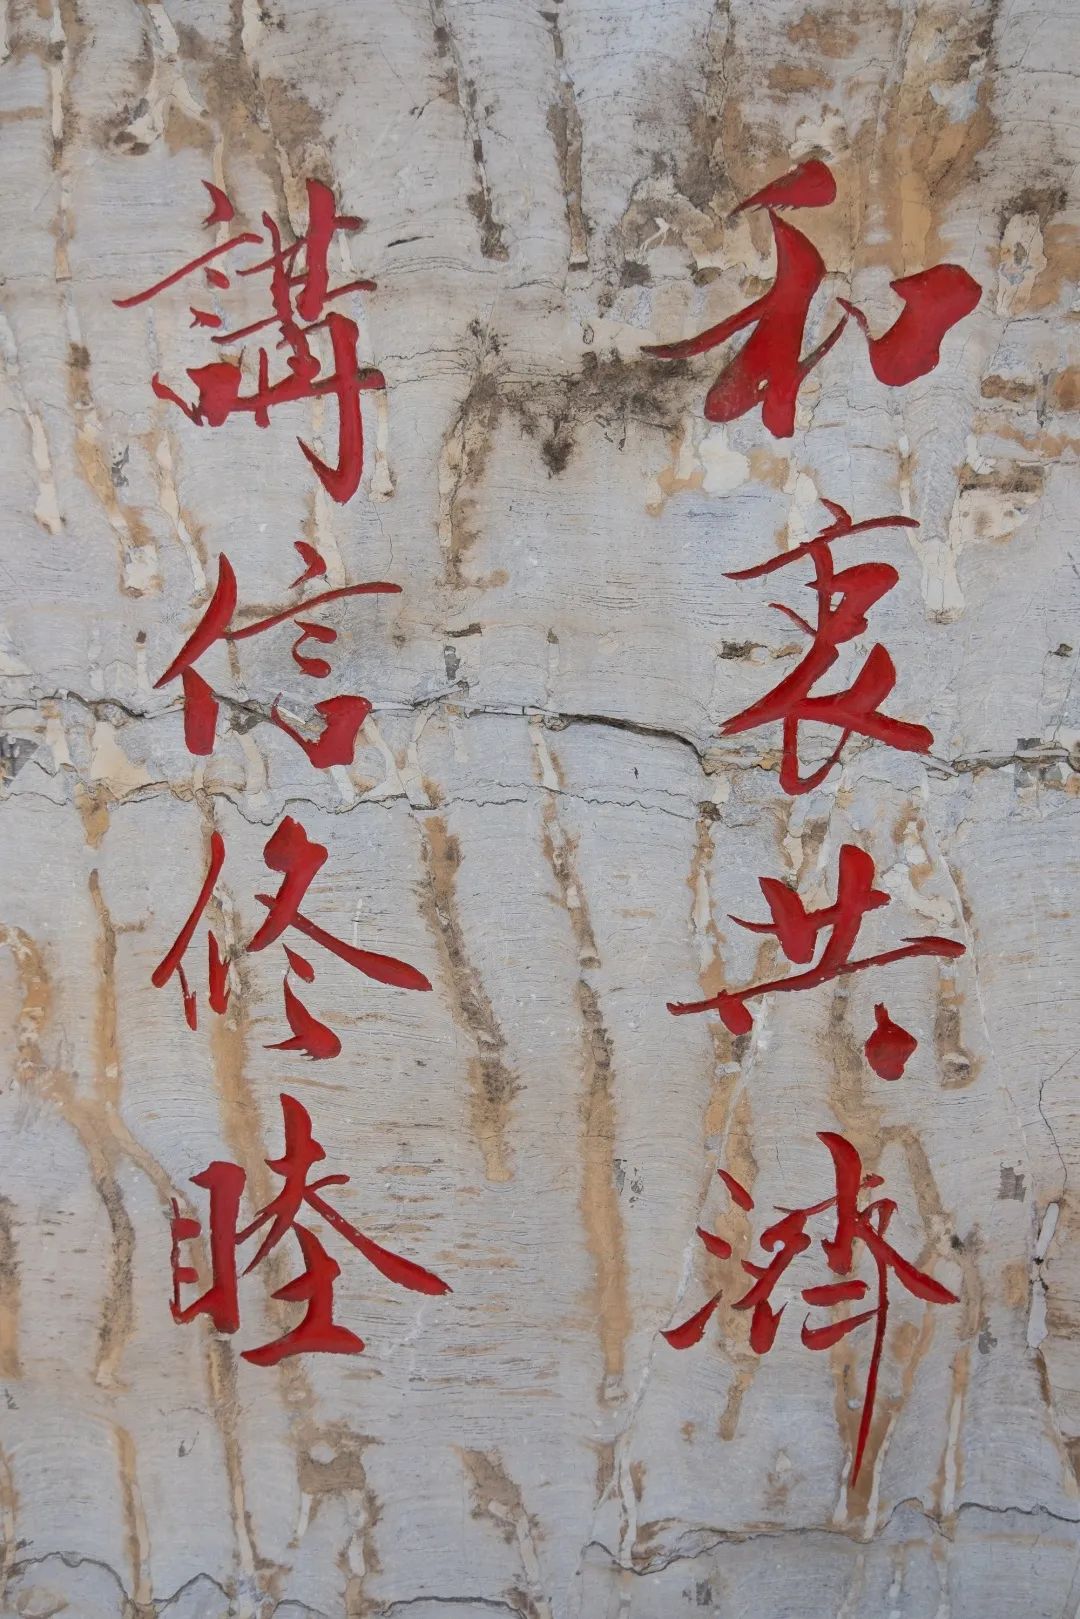 和衷共濟
講信修睦